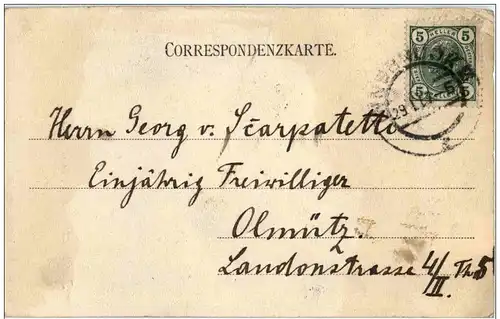 5 HELLER 5
5 5
CORRESPONDENZKARTE.
29.I.
Herrn Georg v. Scarpatetti
Einjährig Freiwilliger
Olmütz
Laudonstrasse 4/III. Th 5